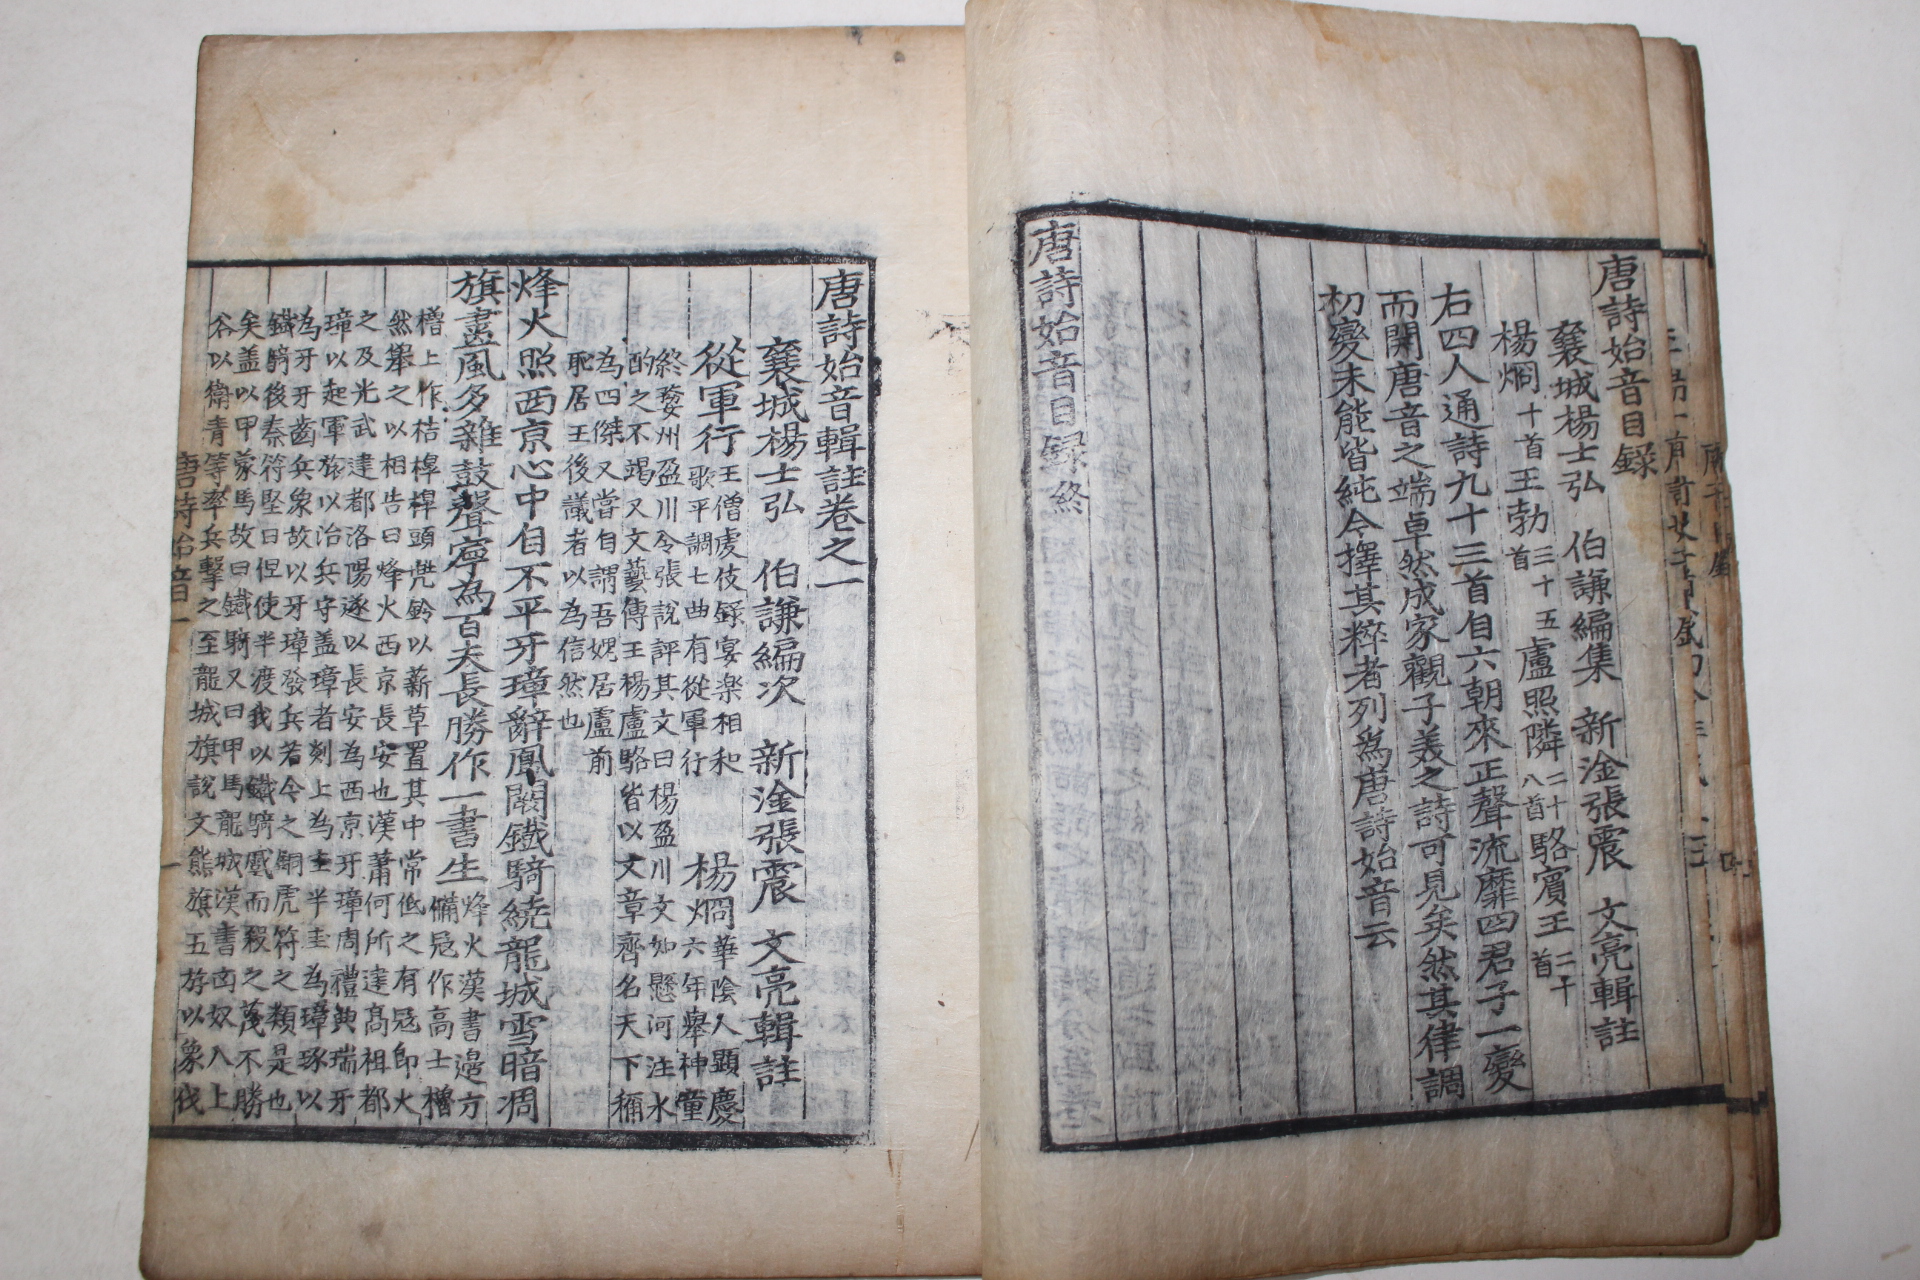 唐詩始音目録
襄城楊士弘 伯謙編集 新淦張震 文亮輯註
楊烱十首王勃三十五首盧照隣二十八首駱賓王二十首
右四人通詩九十三首自六朝來正聲流靡四君子一變
而開唐音之端卓然成家觀子美之詩可見矣然其律調
初變未能皆純今擇其粹者列爲唐詩始音云
唐詩始音目録終
唐詩始音輯註卷之一
襄城楊士弘 伯謙編次 新淦張震 文亮輯註
從軍行 王僧虔伎録宴樂相和
歌平調七曲有從軍行 楊烱 華陰人顯慶
六年舉神童
終婺州盈川令張說評其文曰楊盈川文如懸河注水
酌之不竭又文藝傳王楊盧駱皆以文章齊名天下稱
為四傑又嘗自謂吾媿居盧前
恥居王後議者以為信然也
烽火照西京心中自不平牙璋辭鳳闕鐵騎繞龍城雪暗凋
旗畫風多雜鼓聲寧為百夫長勝作一書生 烽火漢書邉方
備冦作高士櫓
櫓上作桔橰橰頭兠鈴以薪草置其中常低之有冦即火
然舉之以相告曰烽火西京長安也漢蕭何所達髙祖都
之及光武建都洛陽遂以長安為西京牙璋周禮典瑞牙
璋以起軍旅以治兵守盖璋者剡上為圭半圭為璋琢以
為牙牙齒兵象故以牙璋發兵若今之銅虎符之類是也
鐵騎後秦符堅曰但使半渡我以鐵騎蹙而殺之蔑不勝
矣盖以甲蒙馬故曰鐵騎又曰甲馬龍城漢書匈奴入上
谷以衛青等率兵擊之至龍城旗說文熊旗五斿以象伐
唐詩始音一
一